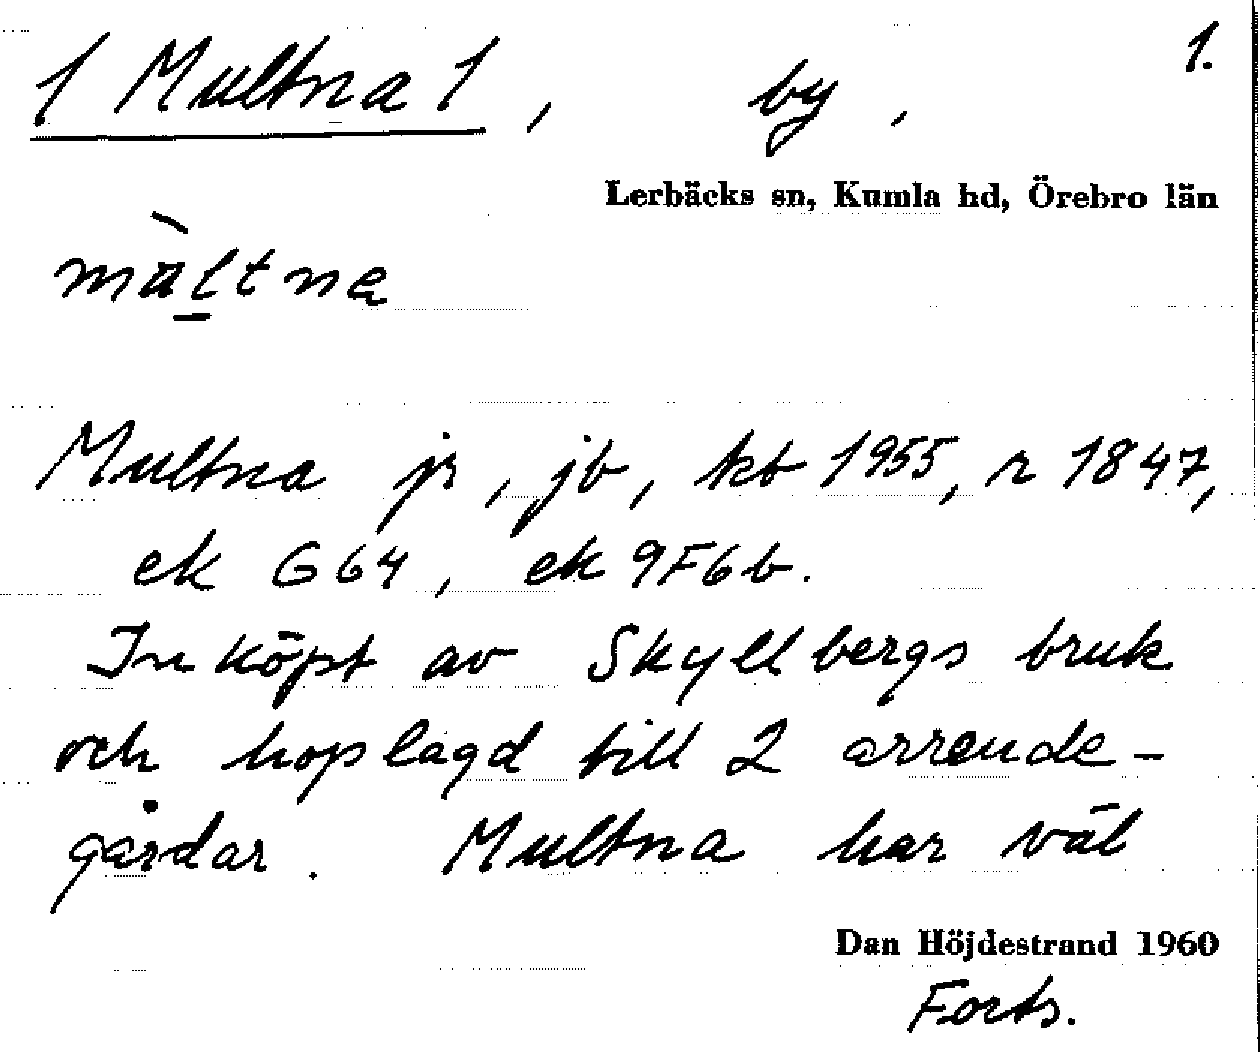 1.
[Multna], by,
Lerbäcks sn, Kumla hd, Örebro län
Multna jr, jb, kb 1955, r 1847,
ek G64, ek 9F6b.
Inköpt av Skyllbergs bruk
och hoplagd till 2 arrende-
gårdar. Multna har väl
Dan Höjdestrand 1960
Forts.